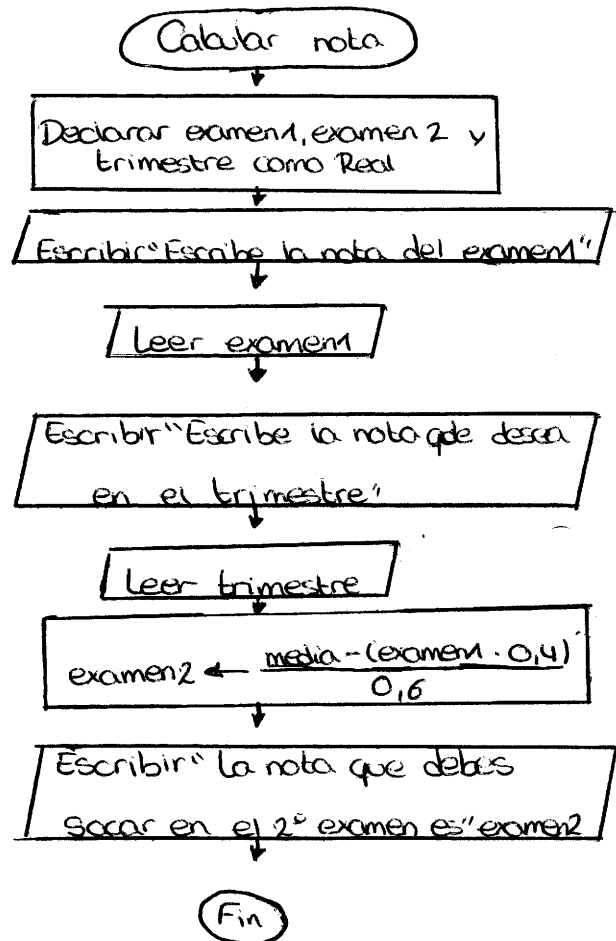 Calcular nota
Declarar examen1, examen 2 y
trimestre como Real
Escribir "Escribe la nota del examen1"
Leer examen1
Escribir "Escribe la nota qde desea
en el trimestre"
Leer trimestre
examen2 ← media - (examen1 · 0,4)
0,6
Escribir "La nota que debes
sacar en el 2º examen es" examen2
Fin